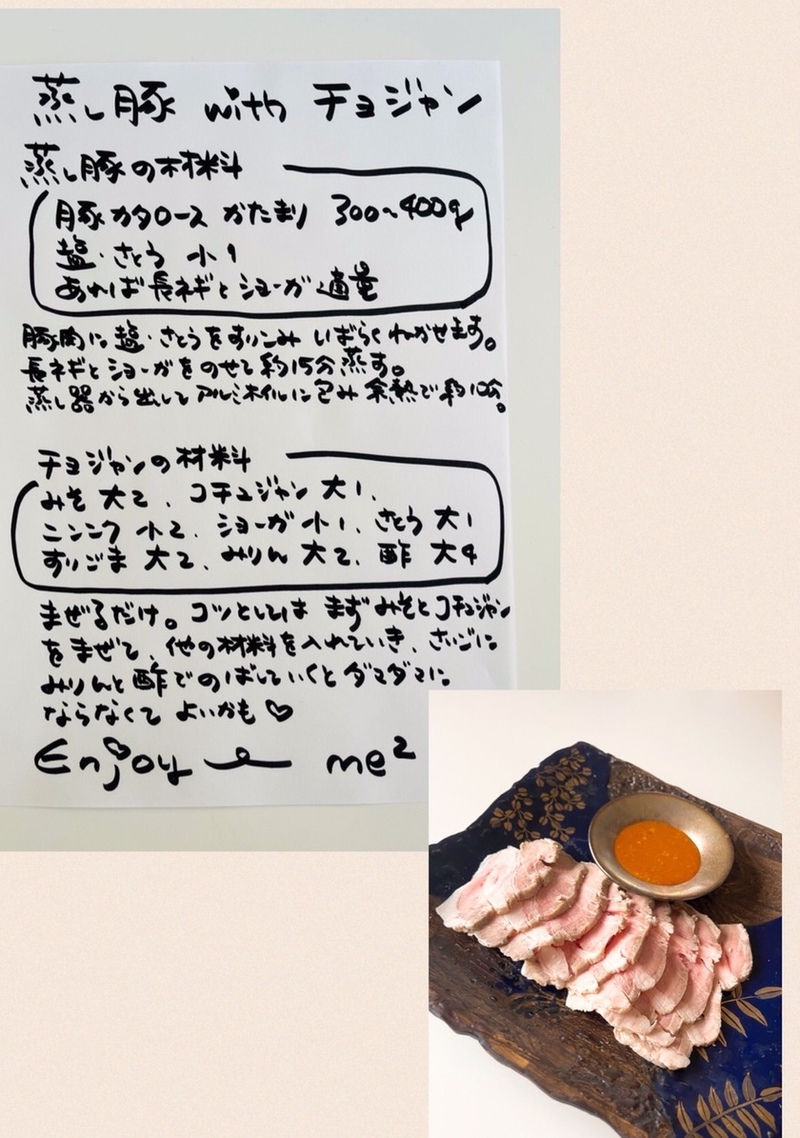 蒸し豚 with チョジャン
蒸し豚の材料
豚カタロース かたまり 300〜400g
塩・さとう 小1
あれば長ネギとショーガ 適量
豚肉に塩・さとうをすりこみ しばらくねかせます。
長ネギとショーガをのせて約15分蒸す。
蒸し器から出してアルミホイルに包み 余熱で約10分。
チョジャンの材料
みそ 大2、コチュジャン 大1、
ニンニク 小2、ショーガ 小1、さとう 大1
すりごま 大2、みりん 大2、酢 大4
まぜるだけ。コツとしては まず みそとコチュジャン
をまぜて、他の材料を入れていき、さいごに
みりんと酢でのばしていくとダマダマに
ならなくてよいかも♡
Enjoy me²